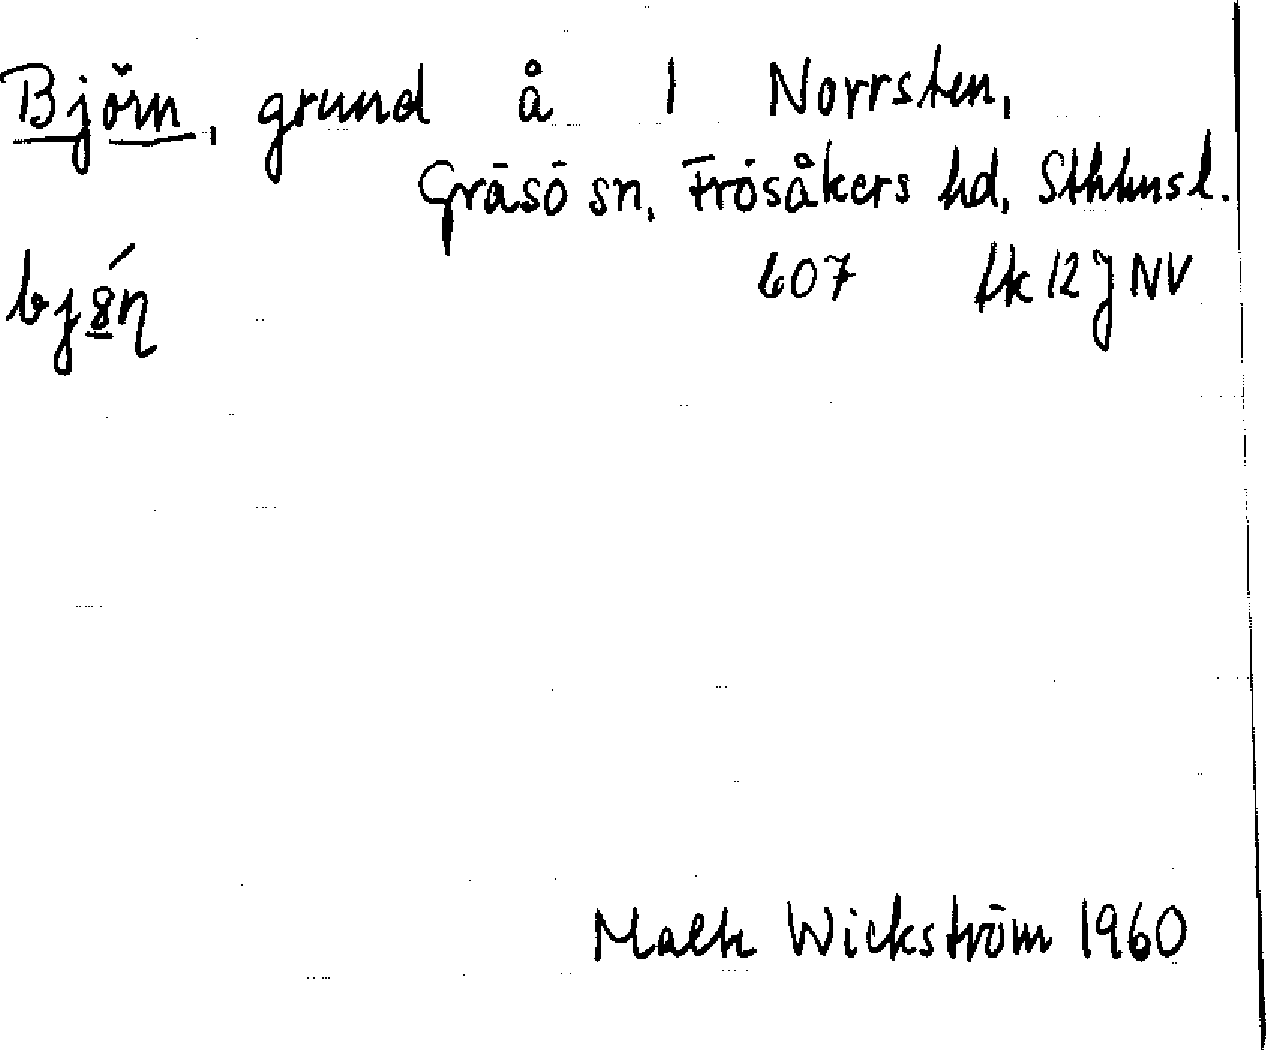 Björn, grund å 1 Norrsten,
Gräsö sn, Frösåkers hd, Sthlmsl.
607 Ek 12J NV
Malte Wickström 1960